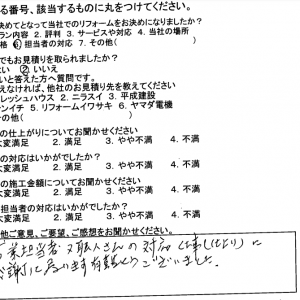 る番号、該当するものに丸をつけてください。
決めてとなって当社でのリフォームをお決めになりましたか?
ラン内容 2. 評判 3. サービスや対応 4. 当社の場所
格 6 担当者の対応 7. その他(
でもお見積りを取られましたか?
はい ② いいえ
いと答えた方へ質問です。
えなければ、他社のお見積り先を教えてください
レッシュハウス 2. ニラスイ 3. 平成建設
ァンイチ 5. リフォームイワサキ 6. ヤマダ電機
その他(
の仕上がりについてお聞かせください
大変満足 2. 満足 3. やや不満 4. 不満
の対応はいかがでしたか?
大変満足 2. 満足 3. やや不満 4. 不満
の施工金額についてお聞かせください
大変満足 2. 満足 3. やや不満 4. 不満
担当者の対応はいかがでしたか?
大変満足 2. 満足 3. やや不満 4. 不満
他ご意見、ご要望、ご感想をお聞かせください。
業担当者又職人さんの対応 仕事(仕上り)に
感謝して居ります有難とうございました。